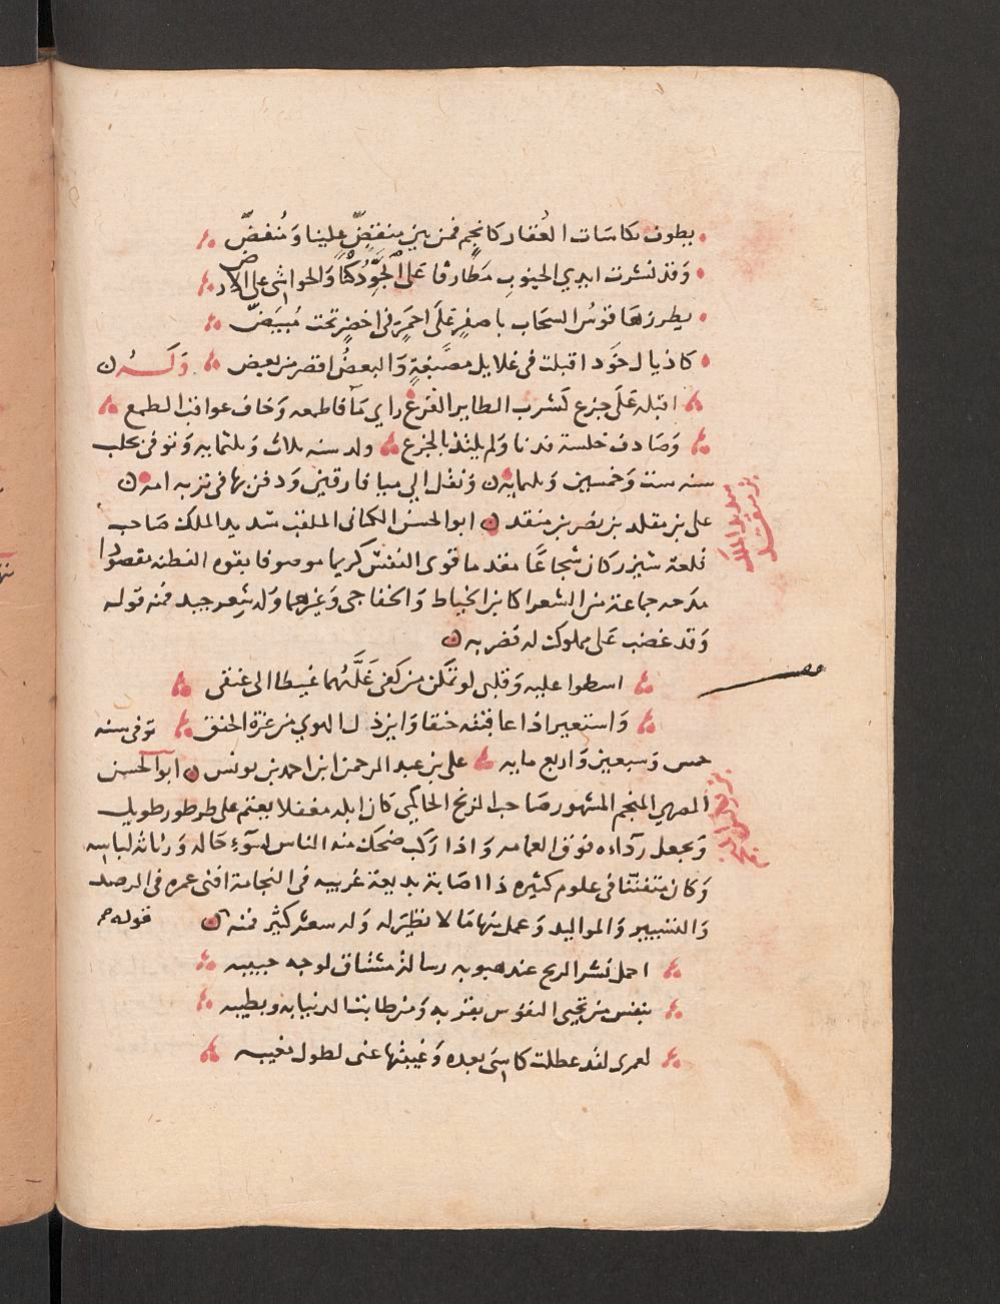 يطوف بكاسات العُقار كانجم فمن بين منقضّ علينا وَمُنفضّ
وَقد نشرت ايدي الجنوبِ مَطَارفا عَلى الجَوِّ دُكْنًا وَالحواشي على الارض
يطرزهَا قوسُ السحَاب باصفرٍ عَلَى احمَرٍ في اخضرٍ تحت مُبيَضّ
كاذيال خَود اقبلت في غلايل مصَبَّغةٍ وَالبعضُ اقصر من بعض وَلَـــهُ ن
اقبله عَلَى جزع كشرب الطاير الفزع راي مَآ فاطمعه وَخاف عواقب الطمع
وَصَادف خلسة فدنا وَلم يلتذ بالجزع ولد سنه ثلاث وَثلثمايه وَتوفى بحلب
سنه ست وَخمسين وثلثمايه ن وَنقل الي ميا فارقين وَدفن بها في تربه امه ن
علي بن مقلد بن نصر بن منقد ن ابو الحسن الكناني الملقب سديد الملك صَاحب
قلعة شيزر كان شجاعًا مقدما قوى النفس كريما موصوفا بقوه الفطنه يقصدوا
مدحه جماعة من الشعرا كابن الخياط وَالخفاجي وَغيرهما وَله شعر جيد فمنه قوله
وَقد غضب عَلى مملوك له فضربه ن
اسطوا عليه وَقلبى لو تمكن من كفى غَلَّهُما غيظا الى عنقى
وَاستعير اذا عاقبته حنقا وَاين ذل الهوي من عزة الحنق توفى سنه
خمس وَسبعين وَاربع مايه على بن عبد الرحمن ابن احمد بن يونس ن ابو الحسن
المصري المنجم المشهور صَاحب الزيج الحاكمي كان ابله مغفلا يعتم على طرطور طويل
وَيجعل ردَاءه فوق العمامه وَاذا رَكب ضحك منه الناس لسوء حَاله وَرثاثه لباسه
وَكان متفننا في علوم كثيره ذا اصَابة بديعة غريبه في النجامة افنى عمره في الرصد
وَالتسيير وَالمواليد وَعمل منها مَا لا نظير له وَله شعر كثير فمنه ن قوله
احمل نشر الريح عند هبوبه رسالة مشتاق لوجه حبيبه
بنفس من تحيى النفوس بقربه وَمن طابت الدنيا به وبطيبه
لعمرى لقد عطلت كاسى بعده وَغيبتها عنى لطول مغيبه
سديد الملك
بن منقد